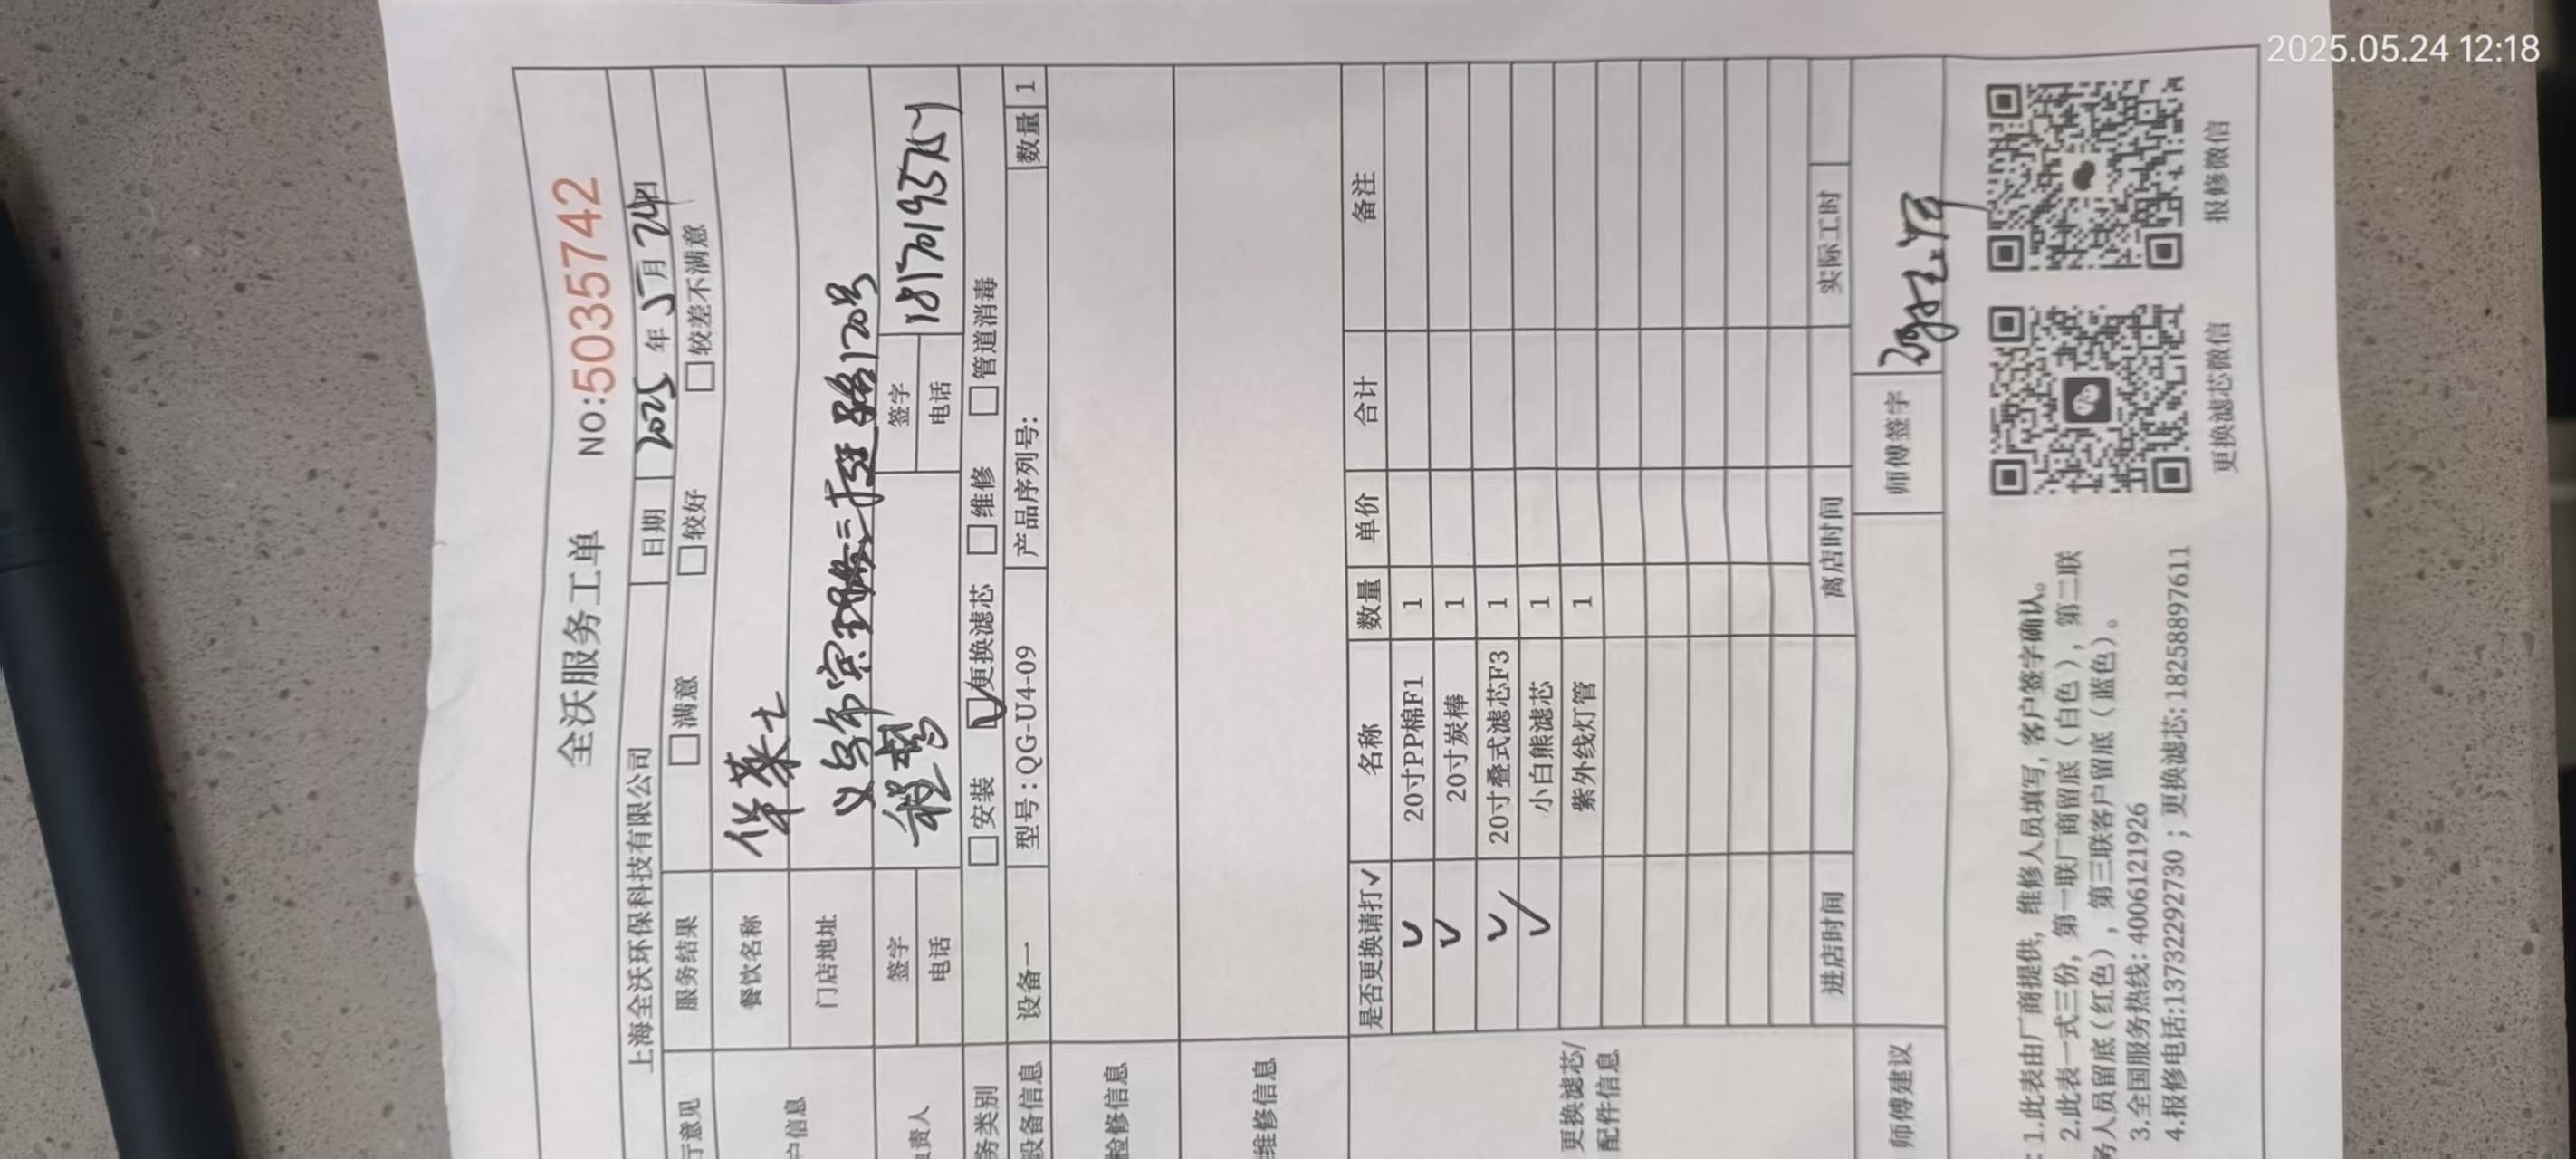 2025.05.24 12:18
全沃服务工单 NO:5035742
上海全沃环保科技有限公司 日期 2025年5月24日
行意见 服务结果 □满意 □较好 □较差不满意
户信息 餐饮名称 华莱士
门店地址 义乌市宾王路120号
负责人 签字 签字
电话 电话 18170193757
务类别 □安装 ☑更换滤芯 □维修 □管道消毒
设备信息 设备一 型号:QG-U4-09 产品序列号: 数量 1
检修信息
维修信息
更换滤芯/配件信息
是否更换请打✓ 名称 数量 单价 合计 备注
✓ 20寸PP棉F1 1
✓ 20寸炭棒 1
✓ 20寸叠式滤芯F3 1
✓ 小白熊滤芯 1
紫外线灯管 1
进店时间 离店时间 实际工时
师傅建议 师傅签字
: 1.此表由厂商提供，维修人员填写，客户签字确认。
2.此表一式三份，第一联厂商留底（白色），第二联
务人员留底（红色），第三联客户留底（蓝色）。
3.全国服务热线: 4006121926
4.报修电话:13732292730 ；更换滤芯: 18258897611
更换滤芯微信 报修微信